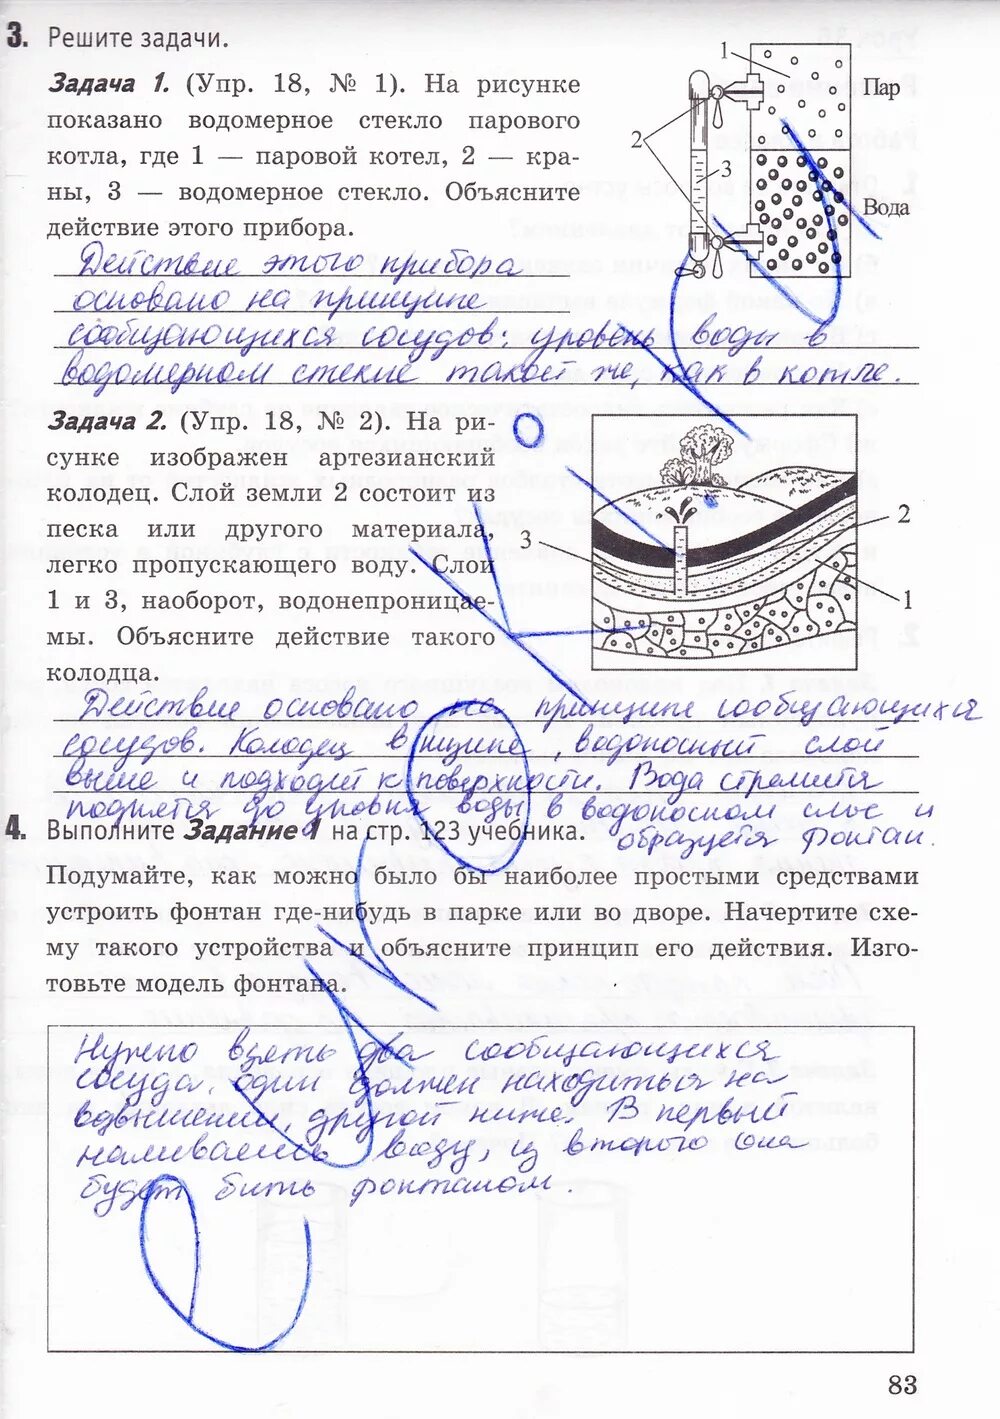 3. Решите задачи.
Задача 1. (Упр. 18, № 1). На рисунке
показано водомерное стекло парового
котла, где 1 — паровой котел, 2 — кра-
ны, 3 — водомерное стекло. Объясните
действие этого прибора.
1
Пар
2
3
Вода
Действие этого прибора
основано на принципе
сообщающихся сосудов: уровень воды в
водомерном стекле такой же, как в котле.
Задача 2. (Упр. 18, № 2). На ри-
сунке изображен артезианский
колодец. Слой земли 2 состоит из
песка или другого материала,
легко пропускающего воду. Слои
1 и 3, наоборот, водонепроницае-
мы. Объясните действие такого
колодца.
2
3
1
Действие основано на принципе сообщающихся
сосудов. Колодец в низине, водоносный слой
выше и подходит к поверхности. Вода стремится
подняться до уровня воды в водоносном слое и
образуется фонтан.
4. Выполните Задание 1 на стр. 123 учебника.
Подумайте, как можно было бы наиболее простыми средствами
устроить фонтан где-нибудь в парке или во дворе. Начертите схе-
му такого устройства и объясните принцип его действия. Изго-
товьте модель фонтана.
Нужно взять два сообщающихся
сосуда, один должен находиться на
возвышении, другой ниже. В первый
наливаешь воду, из второго она
будет бить фонтаном.
83